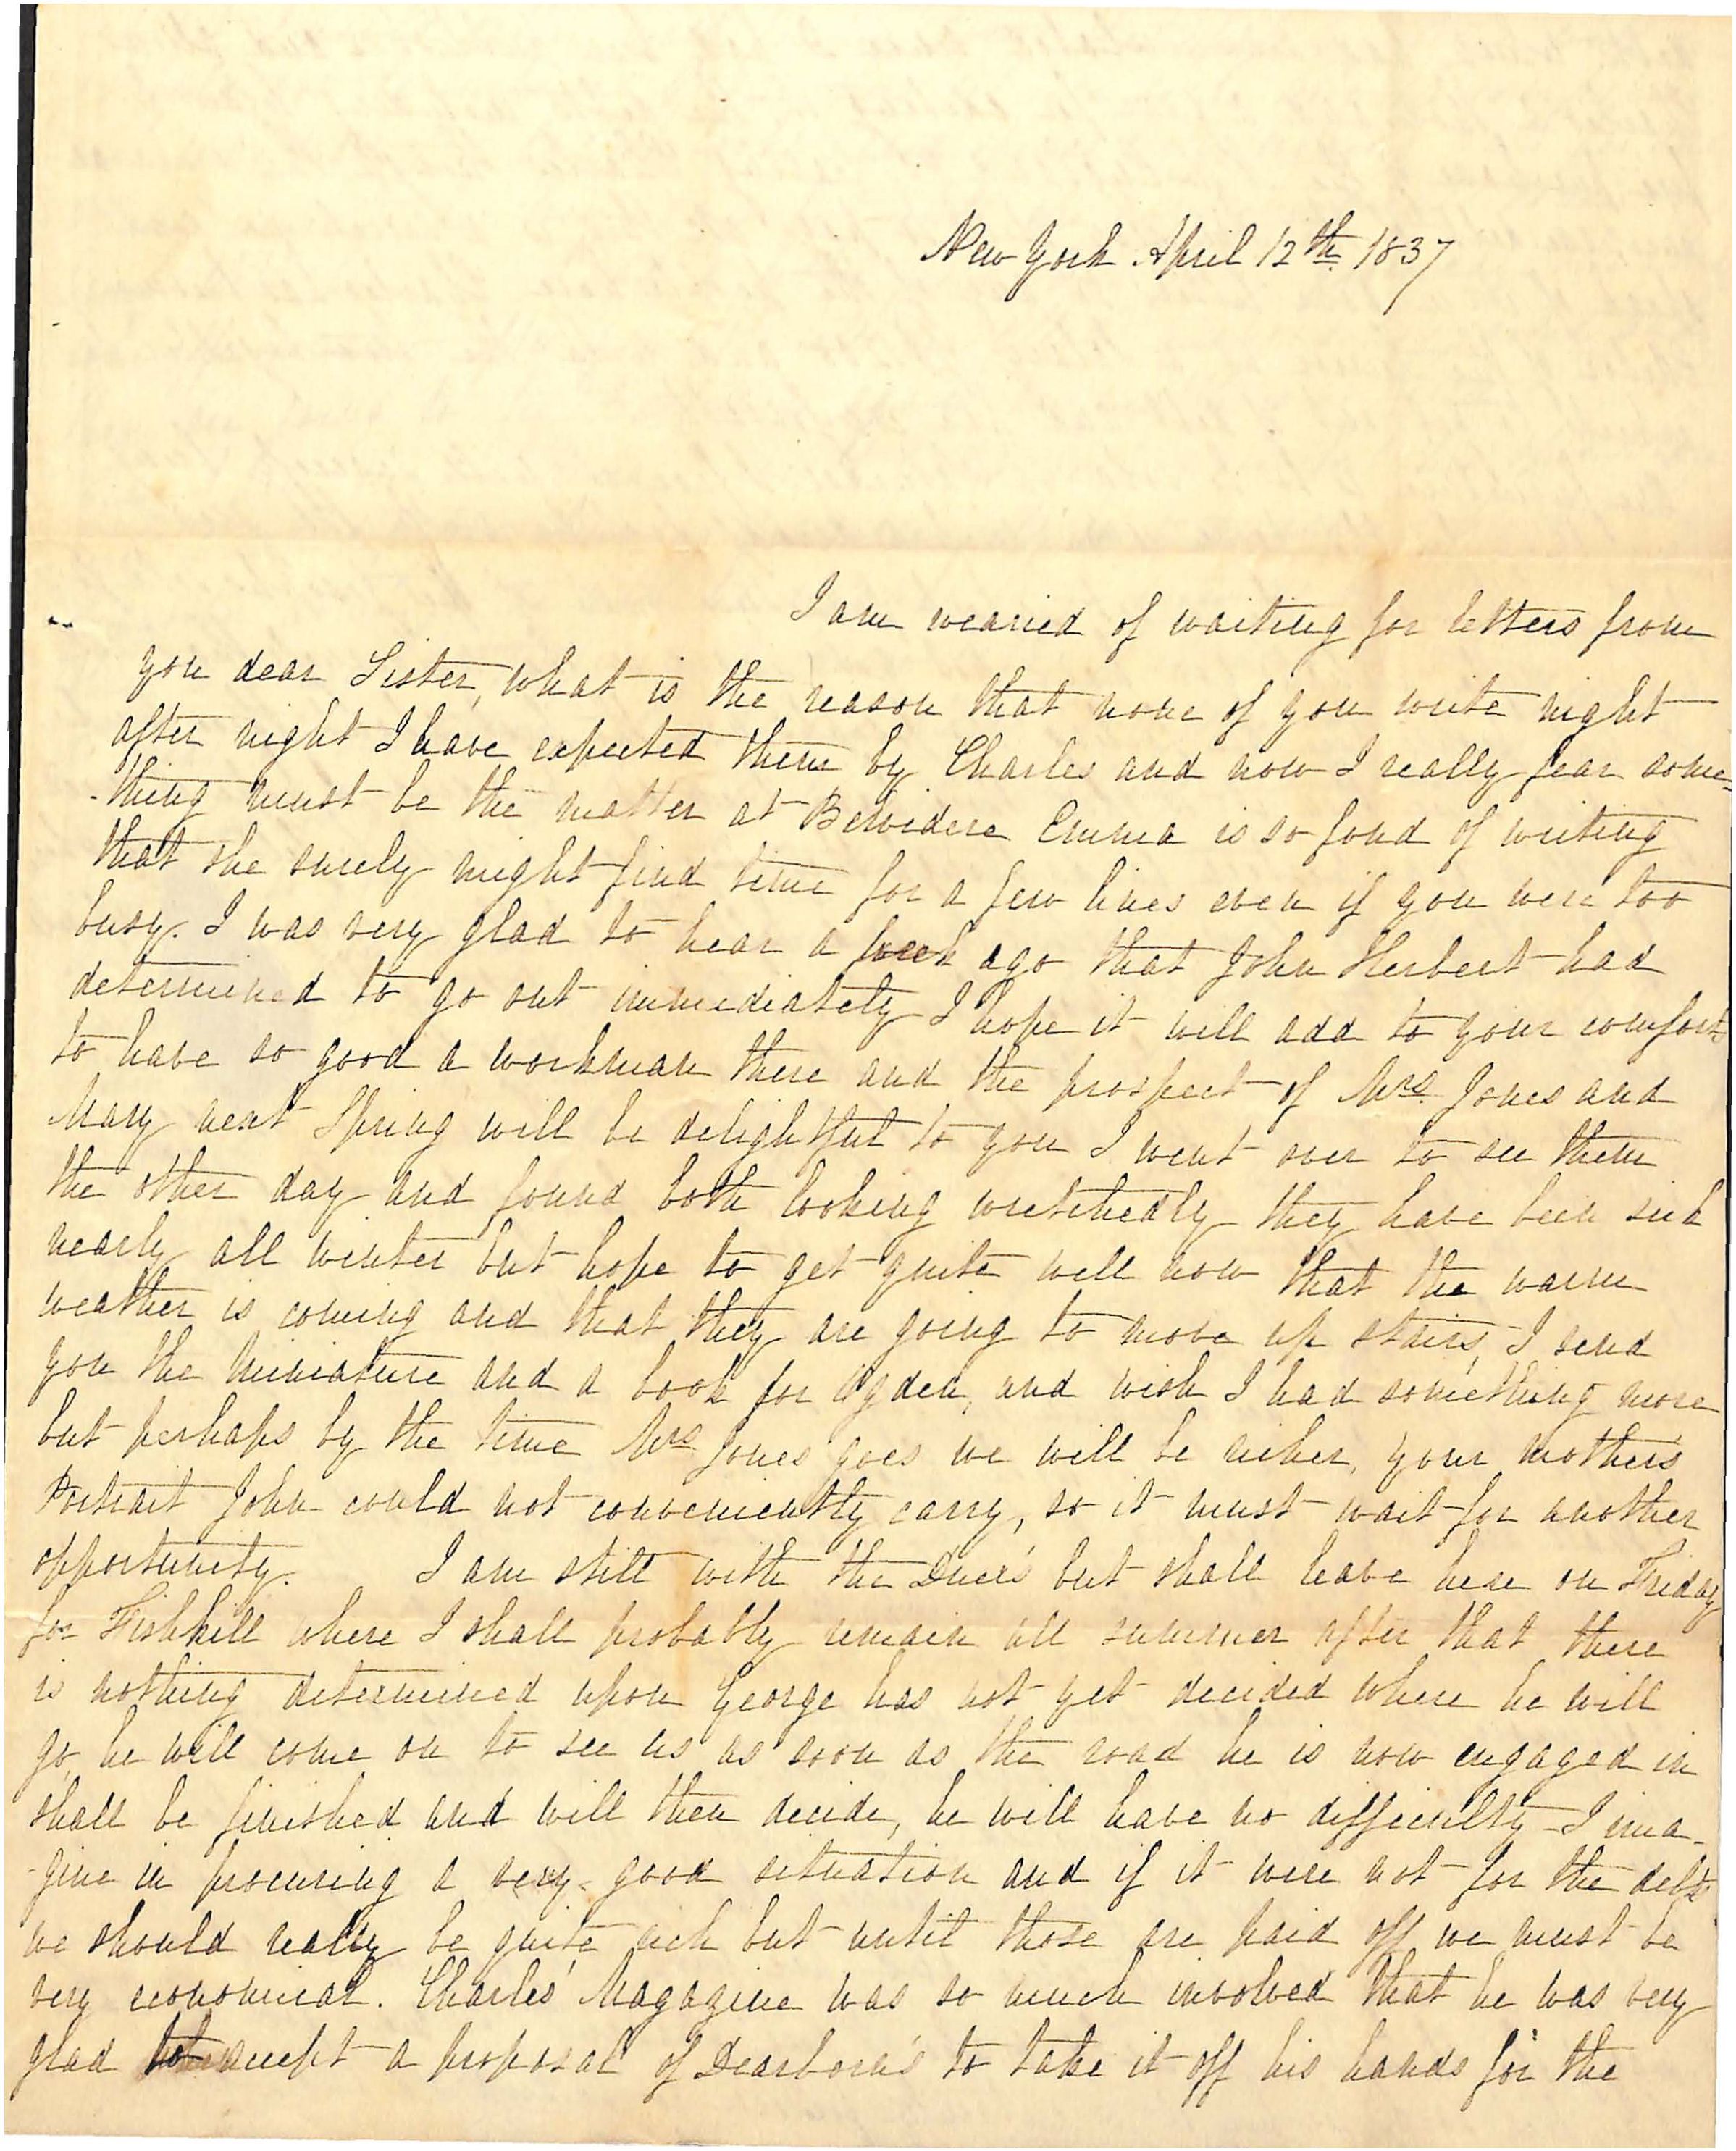 New York April 12th 1837
I am wearied of waiting for letters from
you dear Sister, what is the reason that none of you write night
after night I have expected them by Charles and now I really fear some-
-thing must be the matter at Belvidere Emma is so fond of writing
that she surely might find time for a few lines even if you were too
busy. I was very glad to hear a week ago that John Herbert had
determined to go out immediately I hope it will add to your comfort
to have so good a workman there and the prospect of Mrs. Jones and
Mary next Spring will be delightful to you I went over to see them
the other day and found both looking wretchedly they have been sick
nearly all winter but hope to get quite well now that the warm
weather is coming and that they are going to move up stairs, I send
you the Miniature and a book for Ogden, and wish I had something more
but perhaps by the time Mrs Jones goes we will be richer, your mothers
Portrait John could not conveniently carry, so it must wait for another
opportunity. I am still with the Duers but shall leave here on Friday
for Fishkill where I shall probably remain all summer after that there
is nothing determined upon George has not yet decided where he will
go, he will come on to see us as soon as the road he is now engaged in
shall be finished and will then decide, he will have no difficulty I ima-
-gine in procuring a very good situation and if it were not for the debts
we should really be quite rich but until those are paid off we must be
very economical. Charles' Magazine was so much involved that he was very
glad to accept a proposal of Dearborn's to take it off his hands for the